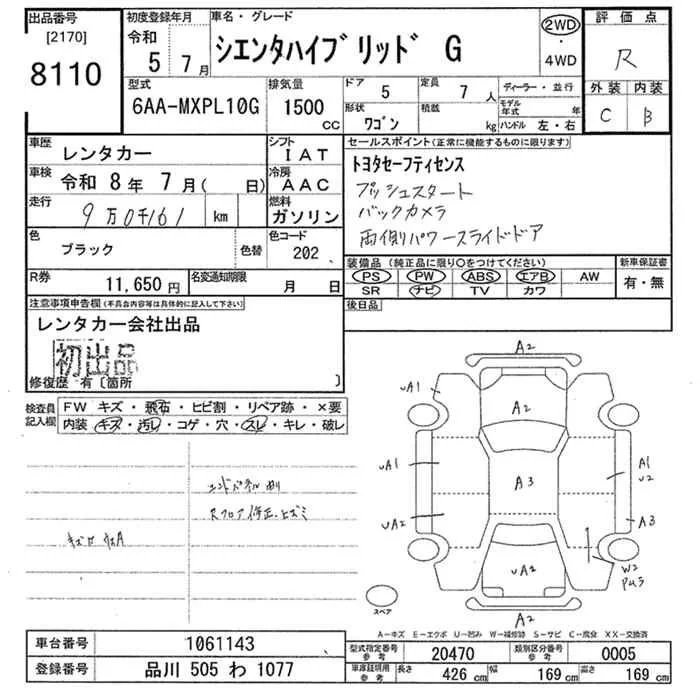 出品番号
[2170]
8110
初度登録年月
令和
5 7月
車名・グレード
シエンタハイブリッド G
2WD
・
4WD
評価点
R
外装 内装
C B
型式
6AA-MXPL10G
排気量
1500
cc
ドア
5
定員
7人
形状
ワゴン
積載
kg
ディーラー・並行
モデル
年式
年
ハンドル 左・右
車歴
レンタカー
シフト
IAT
車検
令和 8年 7月( 日)
冷房
AAC
走行
9万0千161 km
燃料
ガソリン
色
ブラック
色替
色コード
202
R券
11,650円
名変通知期限
月 日
セールスポイント(正常に機能するものに限ります)
トヨタセーフティセンス
プッシュスタート
バックカメラ
両側パワースライドドア
装備品 (純正品に限り○をつけてください)
新車保証書
PS PW ABS エアB AW
有・無
SR ナビ TV カワ
後日品
注意事項申告欄(不具合内容等は具体的に記入して下さい)
レンタカー会社出品
初出品
修復歴 有〔箇所 〕
検査員
記入欄
FW キズ・飛石・ヒビ割・リペア跡・×要
内装 キズ・汚レ・コゲ・穴・スレ・キレ・破レ
エンドパネル
Rフロア修正、ヒズミ
A2
uA1
A2
uA1
A3
A1
u2
uA2
A3
uA2
W2
A2
スペア
A-キズ E-エクボ U-凹み W-補修跡 S-サビ C-腐食 XX-交換済
車台番号
1061143
登録番号
品川 505 わ 1077
型式指定番号
参考
20470
類別区分番号
参考
0005
車庫証明用
参考
長さ
426 cm
幅
169 cm
高さ
169 cm